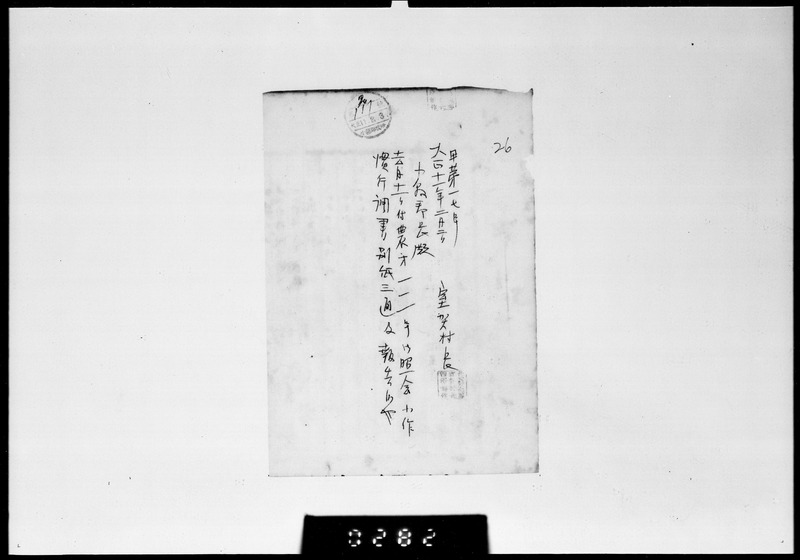 26
甲第一七号
大正十一年二月二日
室賀村長
小県郡長殿
去月十一日付農第一一一号御照会小作
慣行調書別紙三通及報告候也
0282